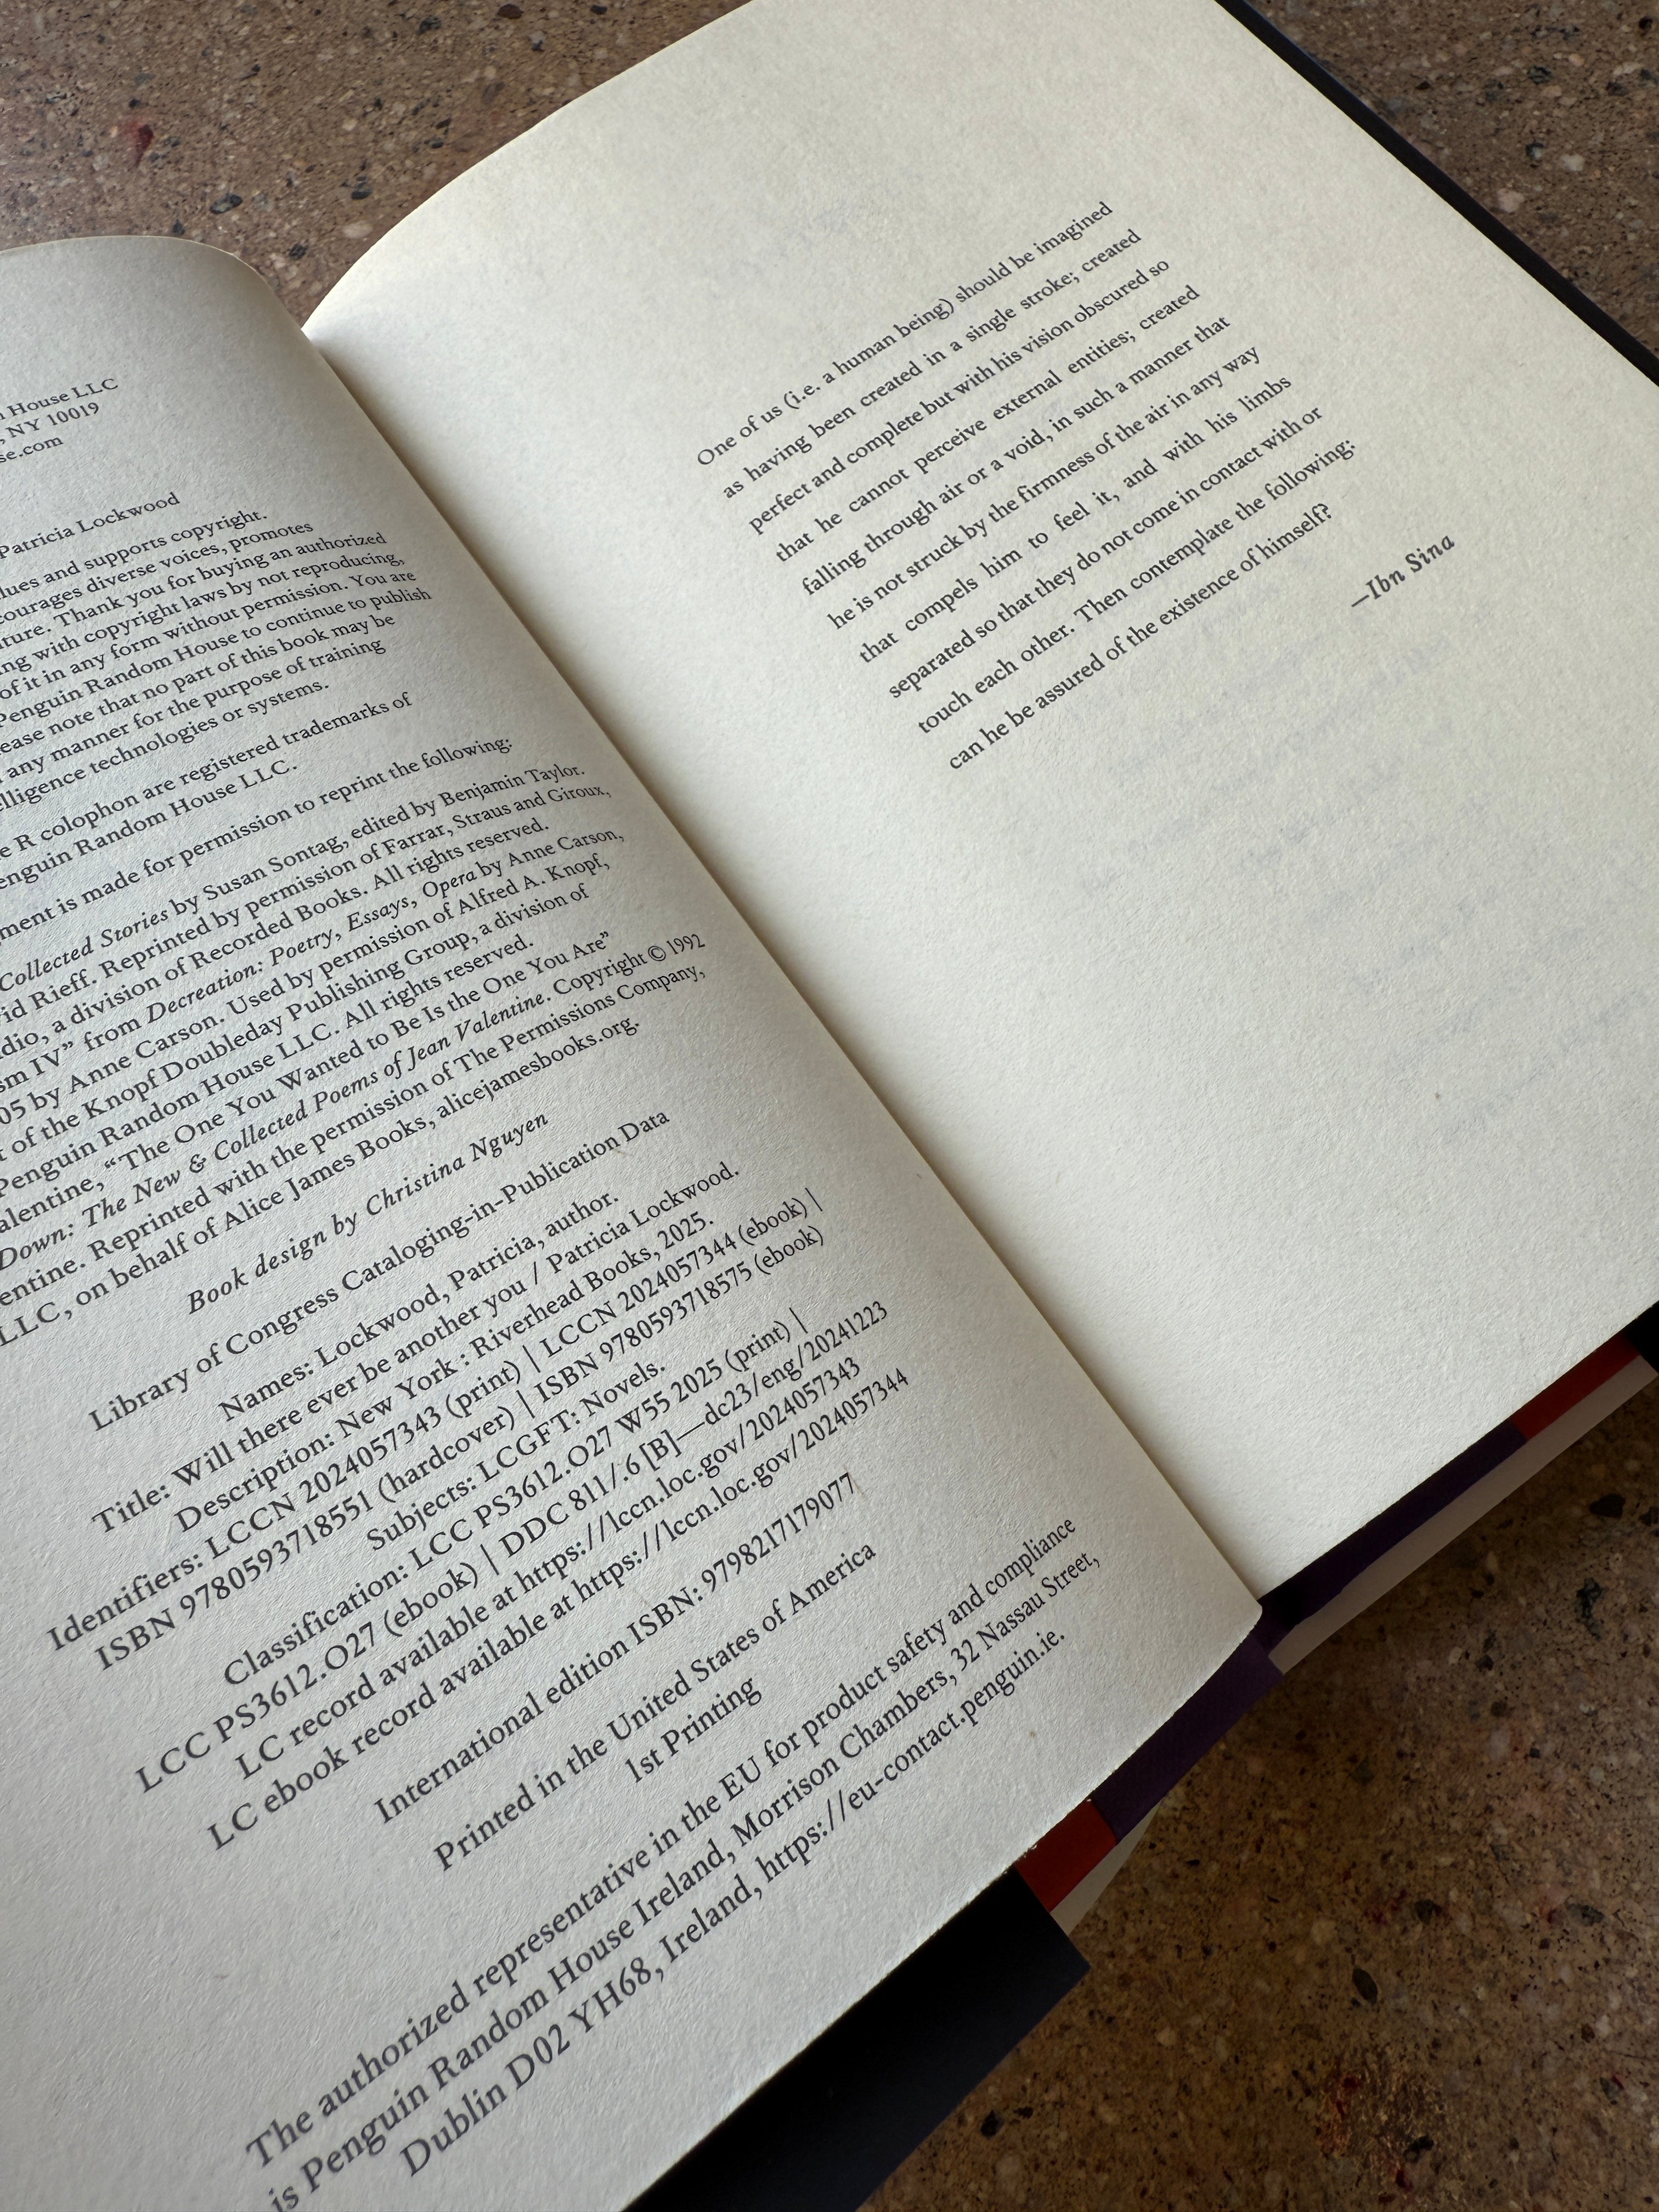 House LLC
, NY 10019
se.com
Patricia Lockwood
lues and supports copyright.
courages diverse voices, promotes
ture. Thank you for buying an authorized
ng with copyright laws by not reproducing,
of it in any form without permission. You are
Penguin Random House to continue to publish
ease note that no part of this book may be
any manner for the purpose of training
elligence technologies or systems.
e R colophon are registered trademarks of
enguin Random House LLC.
ment is made for permission to reprint the following:
Collected Stories by Susan Sontag, edited by Benjamin Taylor.
vid Rieff. Reprinted by permission of Farrar, Straus and Giroux,
dio, a division of Recorded Books. All rights reserved.
sm IV” from Decreation: Poetry, Essays, Opera by Anne Carson,
05 by Anne Carson. Used by permission of Alfred A. Knopf,
t of the Knopf Doubleday Publishing Group, a division of
Penguin Random House LLC. All rights reserved.
alentine, “The One You Wanted to Be Is the One You Are”
Down: The New & Collected Poems of Jean Valentine. Copyright © 1992
entine. Reprinted with the permission of The Permissions Company,
LLC, on behalf of Alice James Books, alicejamesbooks.org.
Book design by Christina Nguyen
Library of Congress Cataloging-in-Publication Data
Names: Lockwood, Patricia, author.
Title: Will there ever be another you / Patricia Lockwood.
Description: New York : Riverhead Books, 2025.
Identifiers: LCCN 2024057343 (print) | LCCN 2024057344 (ebook) |
ISBN 9780593718551 (hardcover) | ISBN 9780593718575 (ebook)
Subjects: LCGFT: Novels.
Classification: LCC PS3612.O27 W55 2025 (print) |
LCC PS3612.O27 (ebook) | DDC 811/.6 [B]—dc23/eng/20241223
LC record available at https://lccn.loc.gov/2024057343
LC ebook record available at https://lccn.loc.gov/2024057344
International edition ISBN: 9798217179077
Printed in the United States of America
1st Printing
The authorized representative in the EU for product safety and compliance
is Penguin Random House Ireland, Morrison Chambers, 32 Nassau Street,
Dublin D02 YH68, Ireland, https://eu-contact.penguin.ie.
One of us (i.e. a human being) should be imagined
as having been created in a single stroke; created
perfect and complete but with his vision obscured so
that he cannot perceive external entities; created
falling through air or a void, in such a manner that
he is not struck by the firmness of the air in any way
that compels him to feel it, and with his limbs
separated so that they do not come in contact with or
touch each other. Then contemplate the following:
can he be assured of the existence of himself?
—Ibn Sina